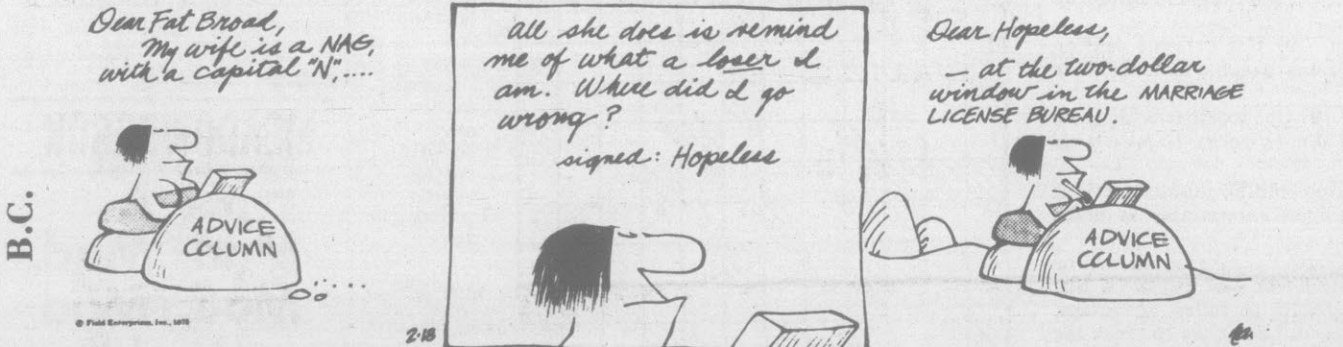 B.C.
Dear Fat Broad,
My wife is a NAG,
with a capital "N",....
ADVICE
COLUMN
© Field Enterprises, Inc., 1978
2-18
All she does is remind
me of what a loser I
am. Where did I go
wrong?
signed: Hopeless
Dear Hopeless,
— at the two-dollar
window in the MARRIAGE
LICENSE BUREAU.
ADVICE
COLUMN